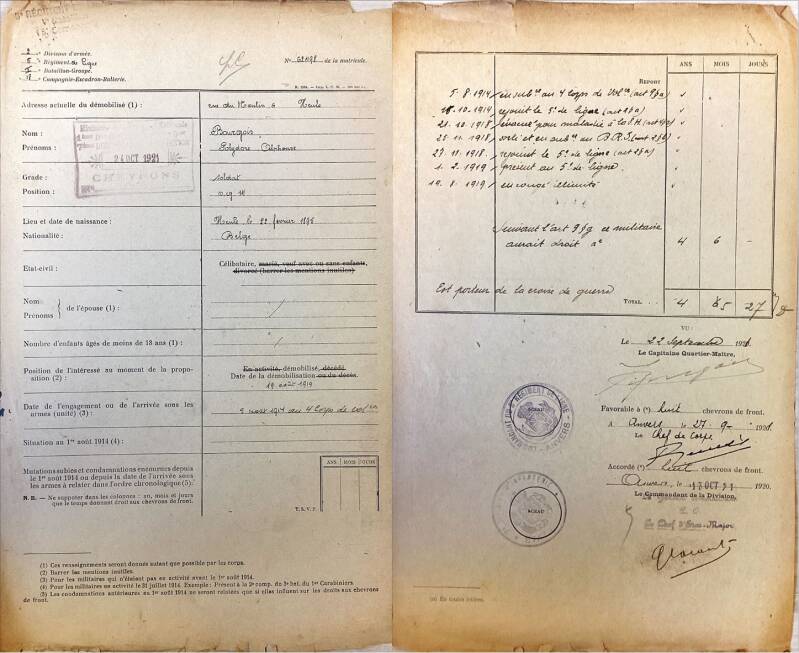 2 Division d'armée.
5 Régiment de Ligne
Bataillon-Groupe.
Compagnie-Escadron-Batterie.
N° de la matricule.
Adresse actuelle du démobilisé (1) : rue du Moulin, 6 Heule
Nom : Bourgois
Prénoms : Polydore Alphonse
24 OCT 1921
CHEVRONS
Grade : soldat
Position :
Lieu et date de naissance : Heule le 22 février 1896
Nationalité : Belge
Etat-civil : Célibataire, marié, veuf avec ou sans enfants,
divorcé (barrer les mentions inutiles)
Nom
Prénoms } de l'épouse (1) : /
Nombre d'enfants âgés de moins de 18 ans (1) : /
Position de l'intéressé au moment de la propo-
sition (2) :
En activité, démobilisé, décédé
Date de la démobilisation ou du décès.
19 août 1919
Date de l'engagement ou de l'arrivée sous les
armes (unité) (3) :
5 août 1914 au 4 Corps de vol
Situation au 1er août 1914 (4) : /
Mutations subies et condamnations encourues depuis
le 1er août 1914 ou depuis la date de l'arrivée sous
les armes à relater dans l'ordre chronologique (5) :
ANS MOIS JOURS
N. B. — Ne supputer dans les colonnes : an, mois et jours
que le temps donnant droit aux chevrons de front.
T. S. V. P.
(1) Ces renseignements seront donnés autant que possible par les corps.
(2) Barrer les mentions inutiles.
(3) Pour les militaires qui n'étaient pas en activité avant le 1er août 1914.
(4) Pour les militaires en activité le 31 juillet 1914. Exemple : Présent à la 2e comp. du 3e bat. du 1er Carabiniers
(5) Les condamnations antérieures au 1er août 1914 ne seront relatées que si elles influent sur les droits aux chevrons
de front.
ANS MOIS JOURS
REPORT
5. 8 1914 en sub.ce au 4 corps de vol.res (art 8§a)
10. 1914 rejoint le 5e de ligne
10. 1918 évacué pour maladie à
25. 11. 1918 sorti et en sub.ce au
27. 11. 1918 rejoint le 5e de ligne
1. 2. 1919 présent au 5e de ligne.
19. 8 1919 en congé illimité
Suivant l'art 9§g ce militaire
aurait droit à 4 6 -
Est porteur de la croix de guerre
TOTAL. 4 5 27
VU :
Le 22 Septembre 1921.
Le Capitaine Quartier-Maître,
Favorable à (*) huit chevrons de front.
A Anvers le 27 - 9 - 1921
Le Chef de Corps
Accordé (*) huit chevrons de front.
Anvers, le OCT 21 1920.
Le Commandant de la Division,
Le Chef d'Etat-Major
(*) En toutes lettres.
SCEAU
ANVERS
SCEAU